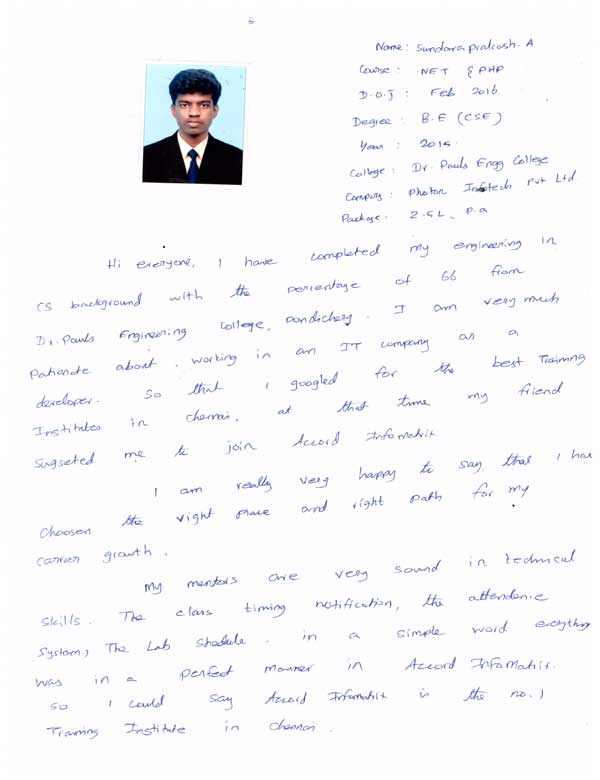 Name: Sundara prakash. A
Course: NET & PHP
D.O.J: Feb 2016.
Degree: B.E (CSE)
Year: 2015
College: Dr. Pauls Engg College
Company: Photon Infotech Pvt Ltd
Package: 2.5L p.a
Hi everyone, I have completed my engineering in
CS background with the percentage of 66 from
Dr. Pauls Engineering College, pondichery. I am very much
Pationate about working in an IT company as a
developer. So that I googled for the best Training
Institutes in chennai, at that time my friend
Sugseted me to join Accord Infomatrix
I am really very happy to say, that I have
Choosen the right place and right path for my
carrer growth.
My mentors are very sound in technical
Skills. The class timing notification, the attendence
System, The Lab Shedule. in a simple word everything
was in a perfect manner in Accord Infomatrix.
So I could say Accord Infomatrix is the no.1
Training Institute in chennai.